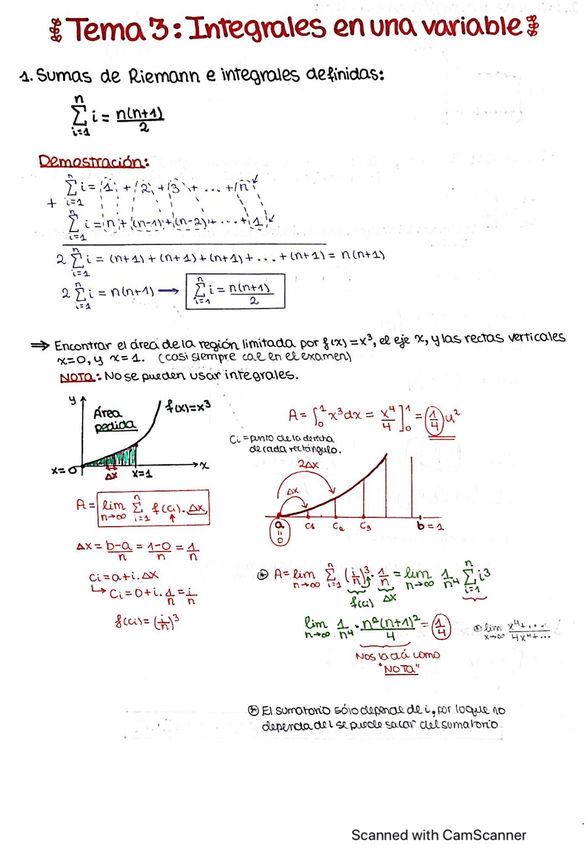 Tema 3: Integrales en una variable
1. Sumas de Riemann e integrales definidas:
n∑i=1 i = n(n+1)/2
Demostración:
n∑i=1 i = 1 + 2 + 3 + ... + n
+
n∑i=1 i = n + (n-1) + (n-2) + ... + 1
2 n∑i=1 i = (n+1) + (n+1) + (n+1) + ... + (n+1) = n(n+1)
2 n∑i=1 i = n(n+1) → n∑i=1 i = n(n+1)/2
⇒ Encontrar el área de la región limitada por f(x)=x³, el eje x, y las rectas verticales
x=0, y x=1. (casi siempre cae en el examen)
NOTA: No se pueden usar integrales.
y
Área
pedida
f(x)=x³
x=0
Δx
x=1
x
A = ∫₀¹ x³dx = x⁴/4 ]₀¹ = 1/4 u²
Ci = punto de la derecha
de cada rectángulo.
2Δx
Δx
a
=
0
C1
C2
C3
b=1
A = lim n→∞ n∑i=1 f(ci).Δx
Δx = b-a/n = 1-0/n = 1/n
Ci = a+i.Δx
↳ Ci = 0+i.1/n = i/n
f(ci) = (i/n)³
⊛ A = lim n→∞ n∑i=1 (i/n)³ . 1/n = lim n→∞ 1/n⁴ n∑i=1 i³
f(ci) Δx
lim n→∞ 1/n⁴ . n²(n+1)²/4 = 1/4
lim x→∞ x⁴+.../4x⁴+...
Nos la dá como
"NOTA"
⊛ El sumatorio sólo depende de i, por lo que no
dependa de i se puede sacar del sumatorio.
Scanned with CamScanner